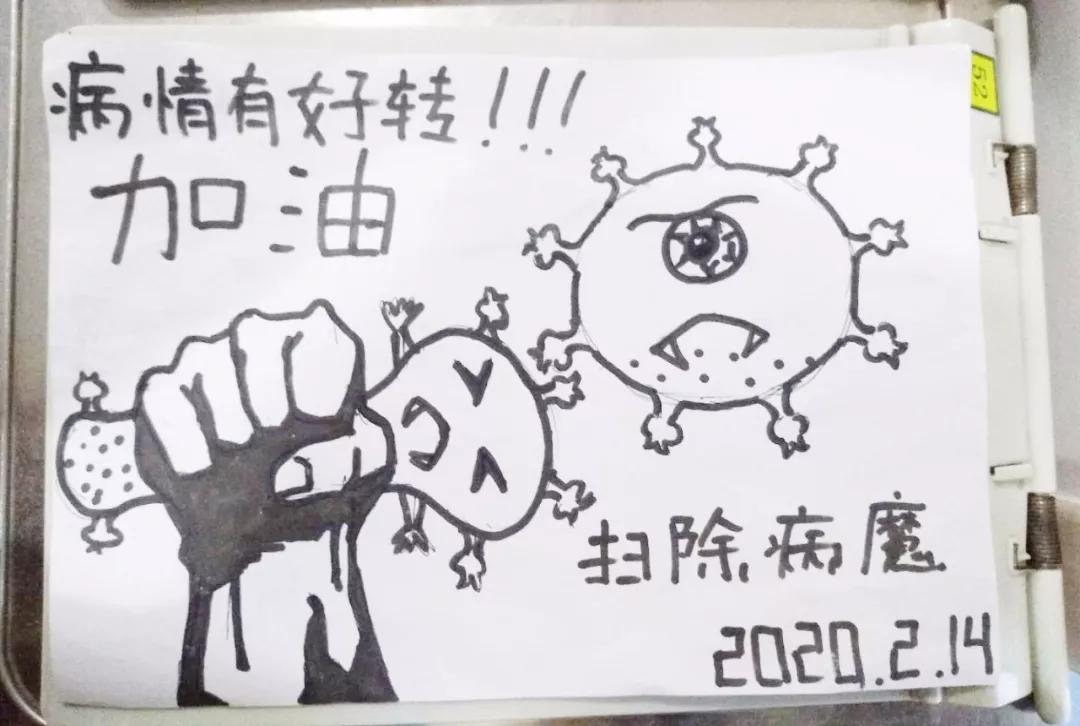 病情有好转!!!
加油
扫除病魔
2020.2.14
52